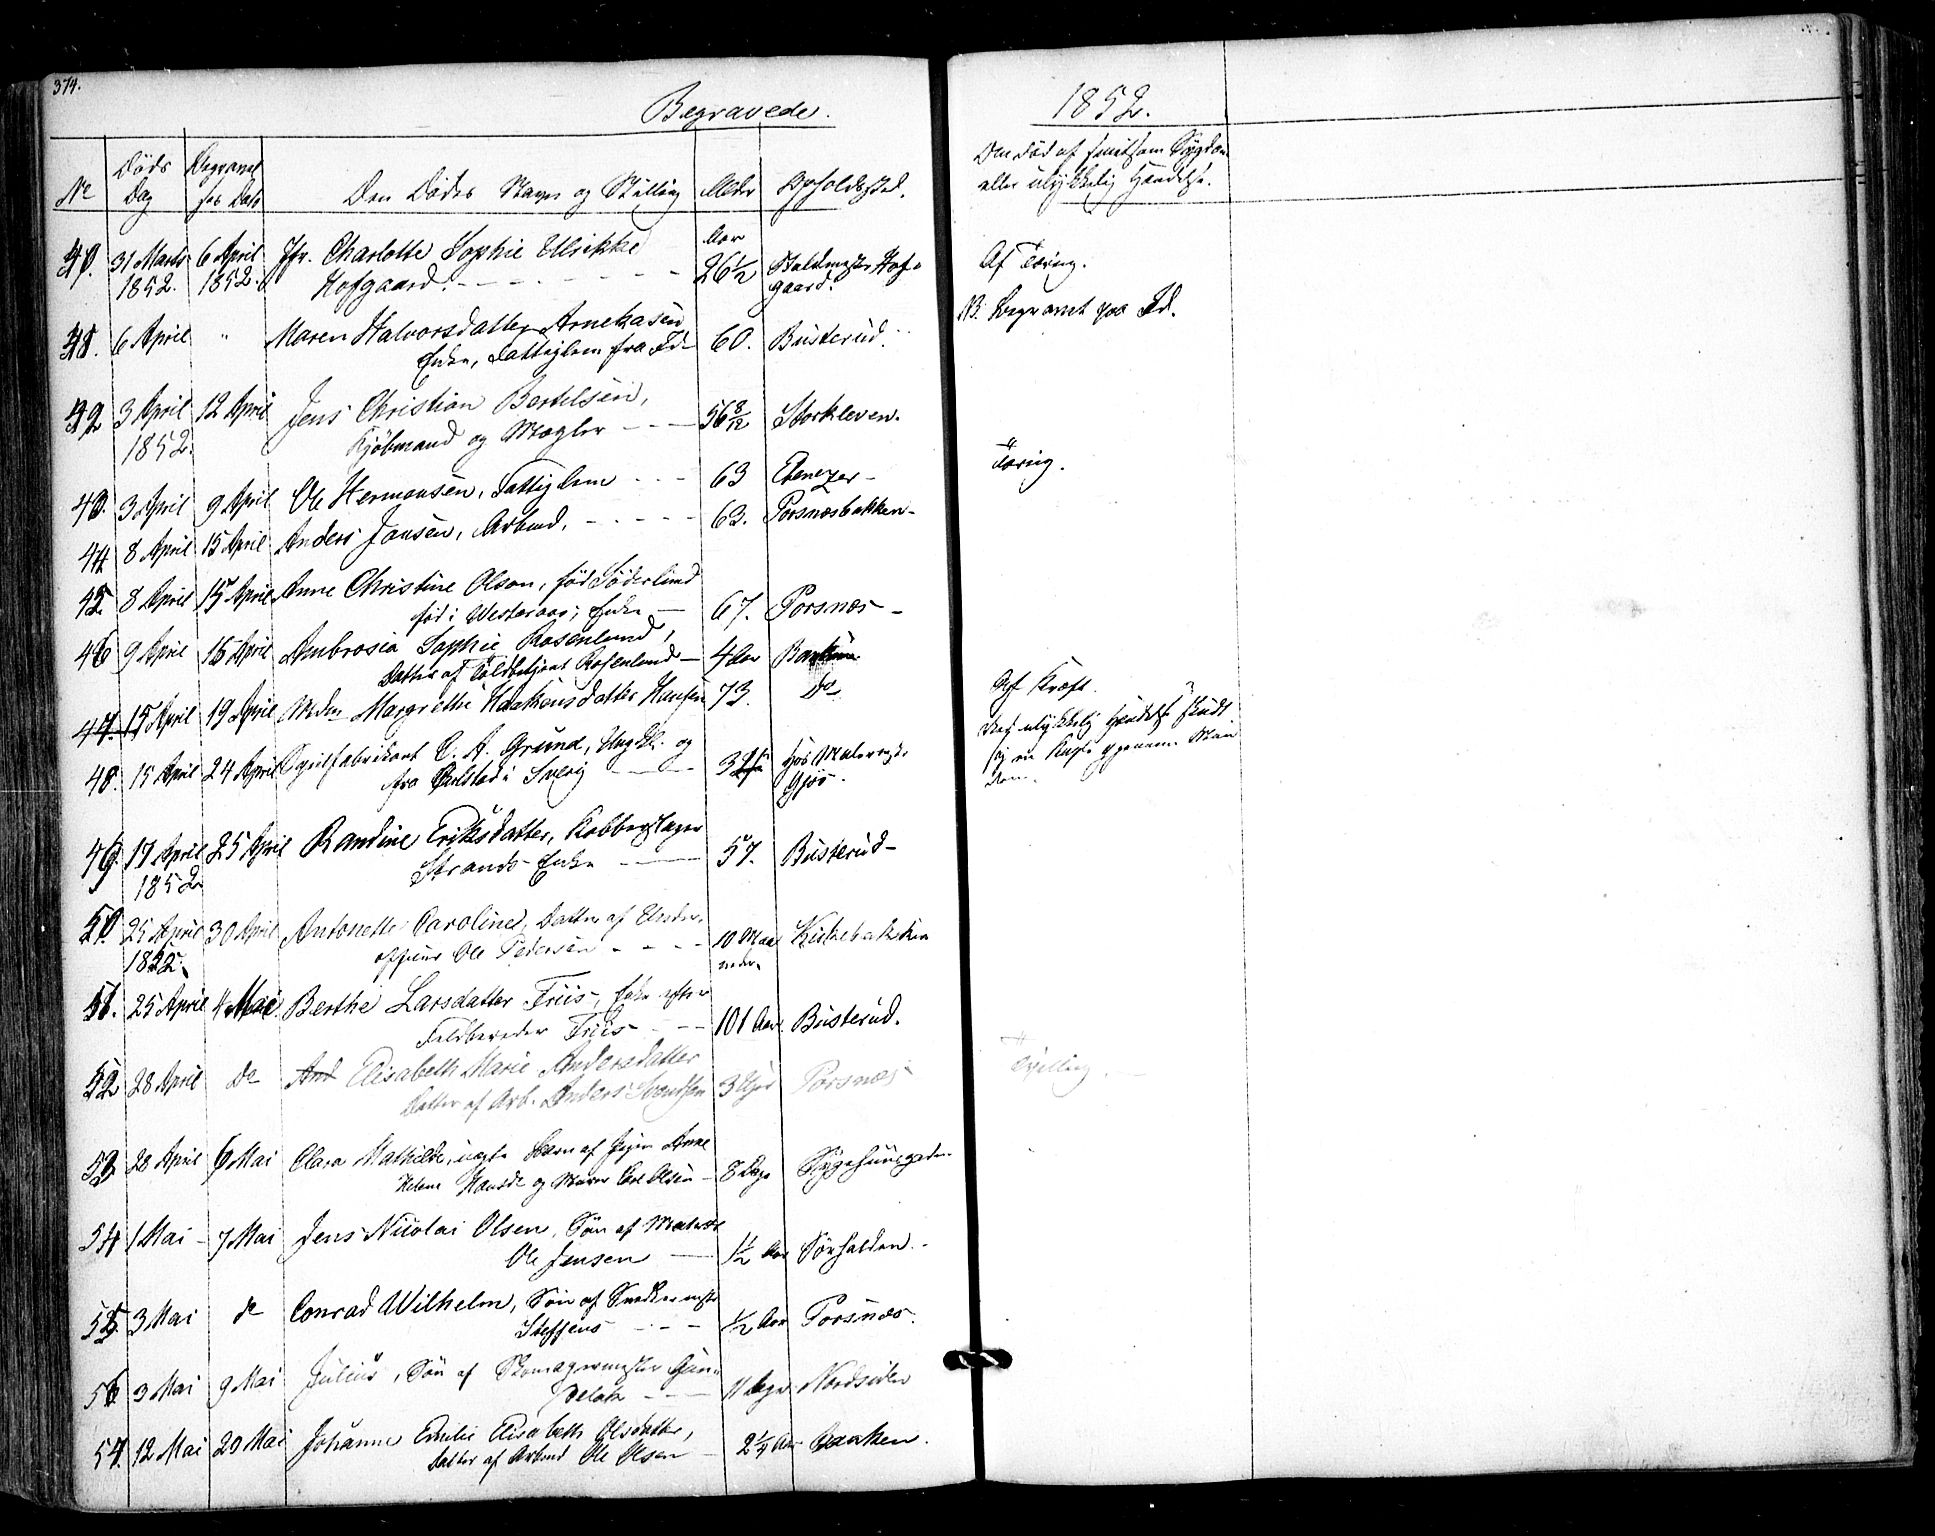 374.
Begravede.
1852.
No
Døds Dag
Begravel
ses Dato
Den Dødes Navn og Stilling
Alder
Opholdssted.
Om død af smitsom Sygdom
eller ulykkelig Hændelse.
31 Marts 1852. 6 April 1852. Jfr. Charlotte Sophie Ulrikke
Hofgaard. 26½ Aar Hof-
gaard. Af Tæring.
6 April " Maren Halvorsdatter Arnekasen
Enke, Fattiglem fra Id 60. Busterud. NB. Begravet paa Id.
3 April 1852. 12 April Jens Christian Bertelsen,
Kjöbmand og Mægler 56 8/12 Storkleven.
Tæring.
3 April 9 April Ole Hermansen, Fattiglem 63 Ebenezer
44 8 April 15 April Anders Jansen, Arbmd. 63. Porsnæsbakken
45 8 April 15 April Anne Christine Olson, fød Söderlund
född i Westeraas, Enke 67. Porsnæs
46 9 April 16 April Ambrosia Sophie Rosenlund,
Datter af Toldbetjent Rosenlund 4 Aar Banken
47. 15 April 19 April Madm Margrethe Haakensdatter Hansen 73. Do
Af Kræft.
48. 15 April 24 April C. A. Grund, Ungkl. og
fra Carlstad i Sverig Hos Malermester
Gjös.
Ved ulykkelig Hændelse skudt
sig en Kugle gjennem Mun
den.
49 17 April 1852 25 April Randine Eriksdatter, Kobberslager
Strands Enke 57. Busterud
50 25 April 1852. 30 April Antonette Caroline, Datter af Under-
officeer Ole Pedersen 10 Maa
neder. Kirkebakken
51. 25 April 4 Mai Berthe Larsdatter Friis, Enke efter
Feldbereder Friis 101 Aar Busterud.
52 28 April Do Elisabeth Marie Andersdatter
Datter af Arb. Anders Svendsen 3 Uger Porsnæs Tvilling.
53 28 April 6 Mai Clara Mathilde, uægte Barn af Pigen Anne
Helene Hansd. og Murer Carl Olsen 8 Dage Sygehuusgaden
54 1 Mai 7 Mai Jens Nicolai Olsen, Sön af Matros
Ole Jensen 1½ Aar Sörhalden.
55 3 Mai do Conrad Wilhelm, Sön af Snedkermester
Steffens ½ Aar Porsnæs.
56 3 Mai 9 Mai Julius, Sön af Skomagermester Gun
11 Dage Nordsiden
57. 12 Mai 20 Mai Johanne Emilie Elisabeth Olsdatter,
Datter af Arbmd Ole Olsen 2¼ Aar Banken.